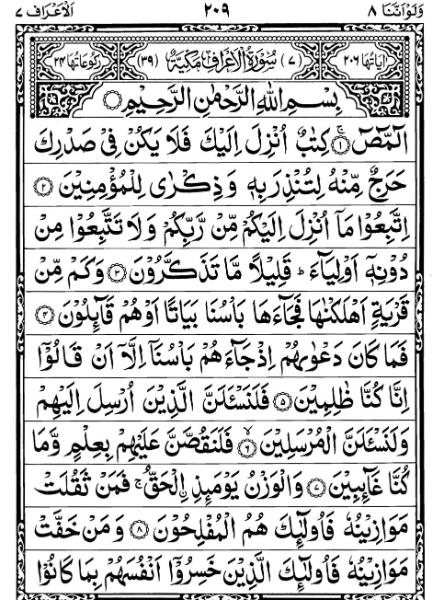 وَلَوْ اَنَّنَا ۸ ۲۰۹ الْاَعْرَاف ۷
اٰيَاتُهَا ۲۰۶ (۷) سُوْرَةُ الْاَعْرَافِ مَكِّيَّةٌ (۳۹) رُكُوْعَاتُهَا ۲۴
بِسْمِ اللّٰهِ الرَّحْمٰنِ الرَّحِيْمِ
الٓمّٓصٓ ۚ‏ ۱ كِتٰبٌ اُنْزِلَ اِلَيْكَ فَلَا يَكُنْ فِىْ صَدْرِكَ
حَرَجٌ مِّنْهُ لِتُنْذِرَ بِهٖ وَ ذِكْرٰى لِلْمُؤْمِنِيْنَ ۲
اِتَّبِعُوْا مَاۤ اُنْزِلَ اِلَيْكُمْ مِّنْ رَّبِّكُمْ وَلَا تَتَّبِعُوْا مِنْ
دُوْنِهٖۤ اَوْلِيَآءَ ؕ قَلِيْلًا مَّا تَذَكَّرُوْنَ ۳ وَكَمْ مِّنْ
قَرْيَةٍ اَهْلَكْنٰهَا فَجَآءَهَا بَاْسُنَا بَيَاتًا اَوْ هُمْ قَآئِلُوْنَ ۴
فَمَا كَانَ دَعْوٰىهُمْ اِذْ جَآءَهُمْ بَاْسُنَاۤ اِلَّاۤ اَنْ قَالُوْۤا
اِنَّا كُنَّا ظٰلِمِيْنَ ۵ فَلَنَسْـَٔلَنَّ الَّذِيْنَ اُرْسِلَ اِلَيْهِمْ
وَلَنَسْـَٔلَنَّ الْمُرْسَلِيْنَ ۙ‏ ۶ فَلَنَقُصَّنَّ عَلَيْهِمْ بِعِلْمٍ وَّمَا
كُنَّا غَآئِبِيْنَ ۷ وَالْوَزْنُ يَوْمَئِذِ اۨلْحَقُّ ۚ فَمَنْ ثَقُلَتْ
مَوَازِيْنُهٗ فَاُولٰٓئِكَ هُمُ الْمُفْلِحُوْنَ ۸ وَ مَنْ خَفَّتْ
مَوَازِيْنُهٗ فَاُولٰٓئِكَ الَّذِيْنَ خَسِرُوْۤا اَنْفُسَهُمْ بِمَا كَانُوْا